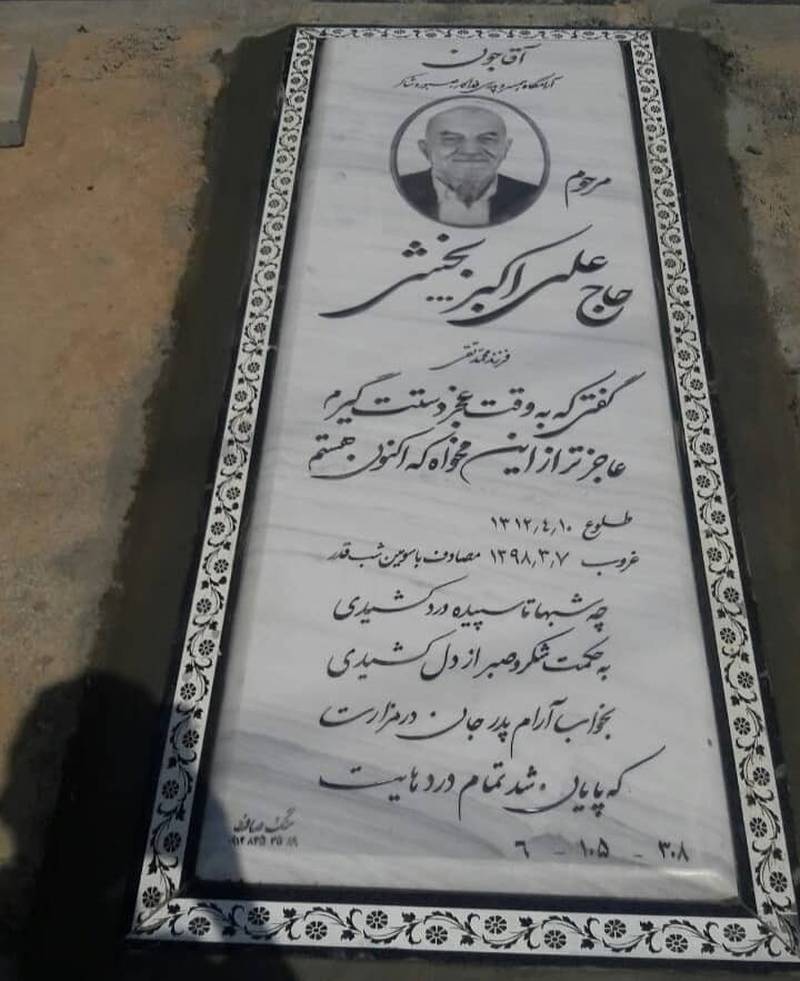 آقاجون
آرامگاه همسر و پدری فداکار صبور و شاکر
مرحوم
حاج علی اکبر بخشی
فرزند محمد تقی
گفتی که به وقت عجز دستت گیرم
عاجزتر از این مخواه که اکنون هستم
طلوع ۱۳۱۲٫۴٫۱۰
غروب ۱۳۹۸٫۳٫۷ مصادف با سومین شب قدر
چه شبها تا سپیده درد کشیدی
به حکمت شکر و صبر از دل کشیدی
بخواب آرام پدر جان در مزارت
که پایان شد تمام دردهایت
۳۰۸ - ۱۰۵ - ۶
سنگ صافی